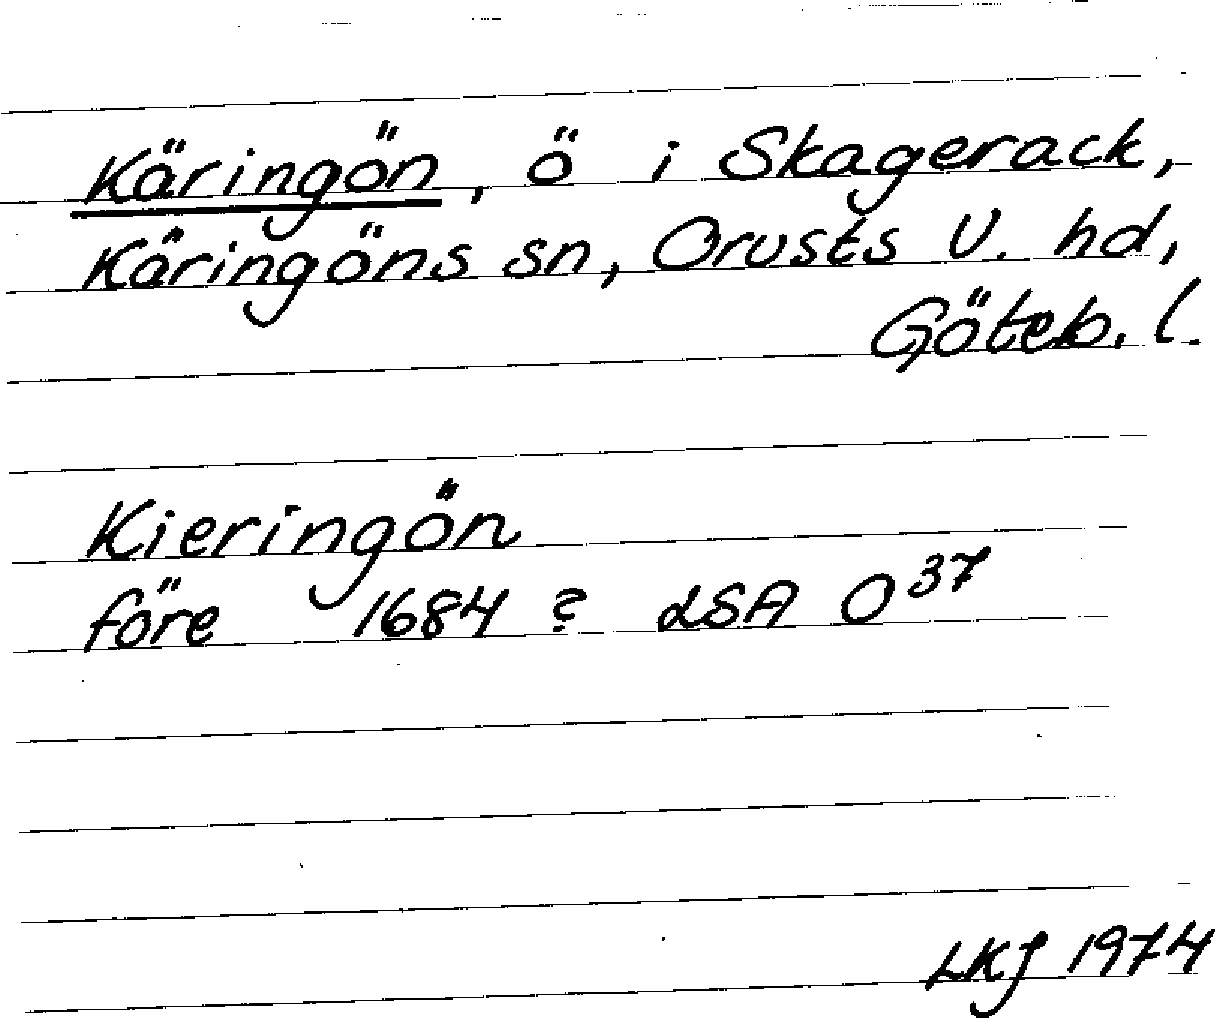 Käringön, ö i Skagerack,
Käringöns sn, Orusts V. hd,
Göteb. l.
Kieringön
före 1684 ? LSA O³⁷
LKJ 1974